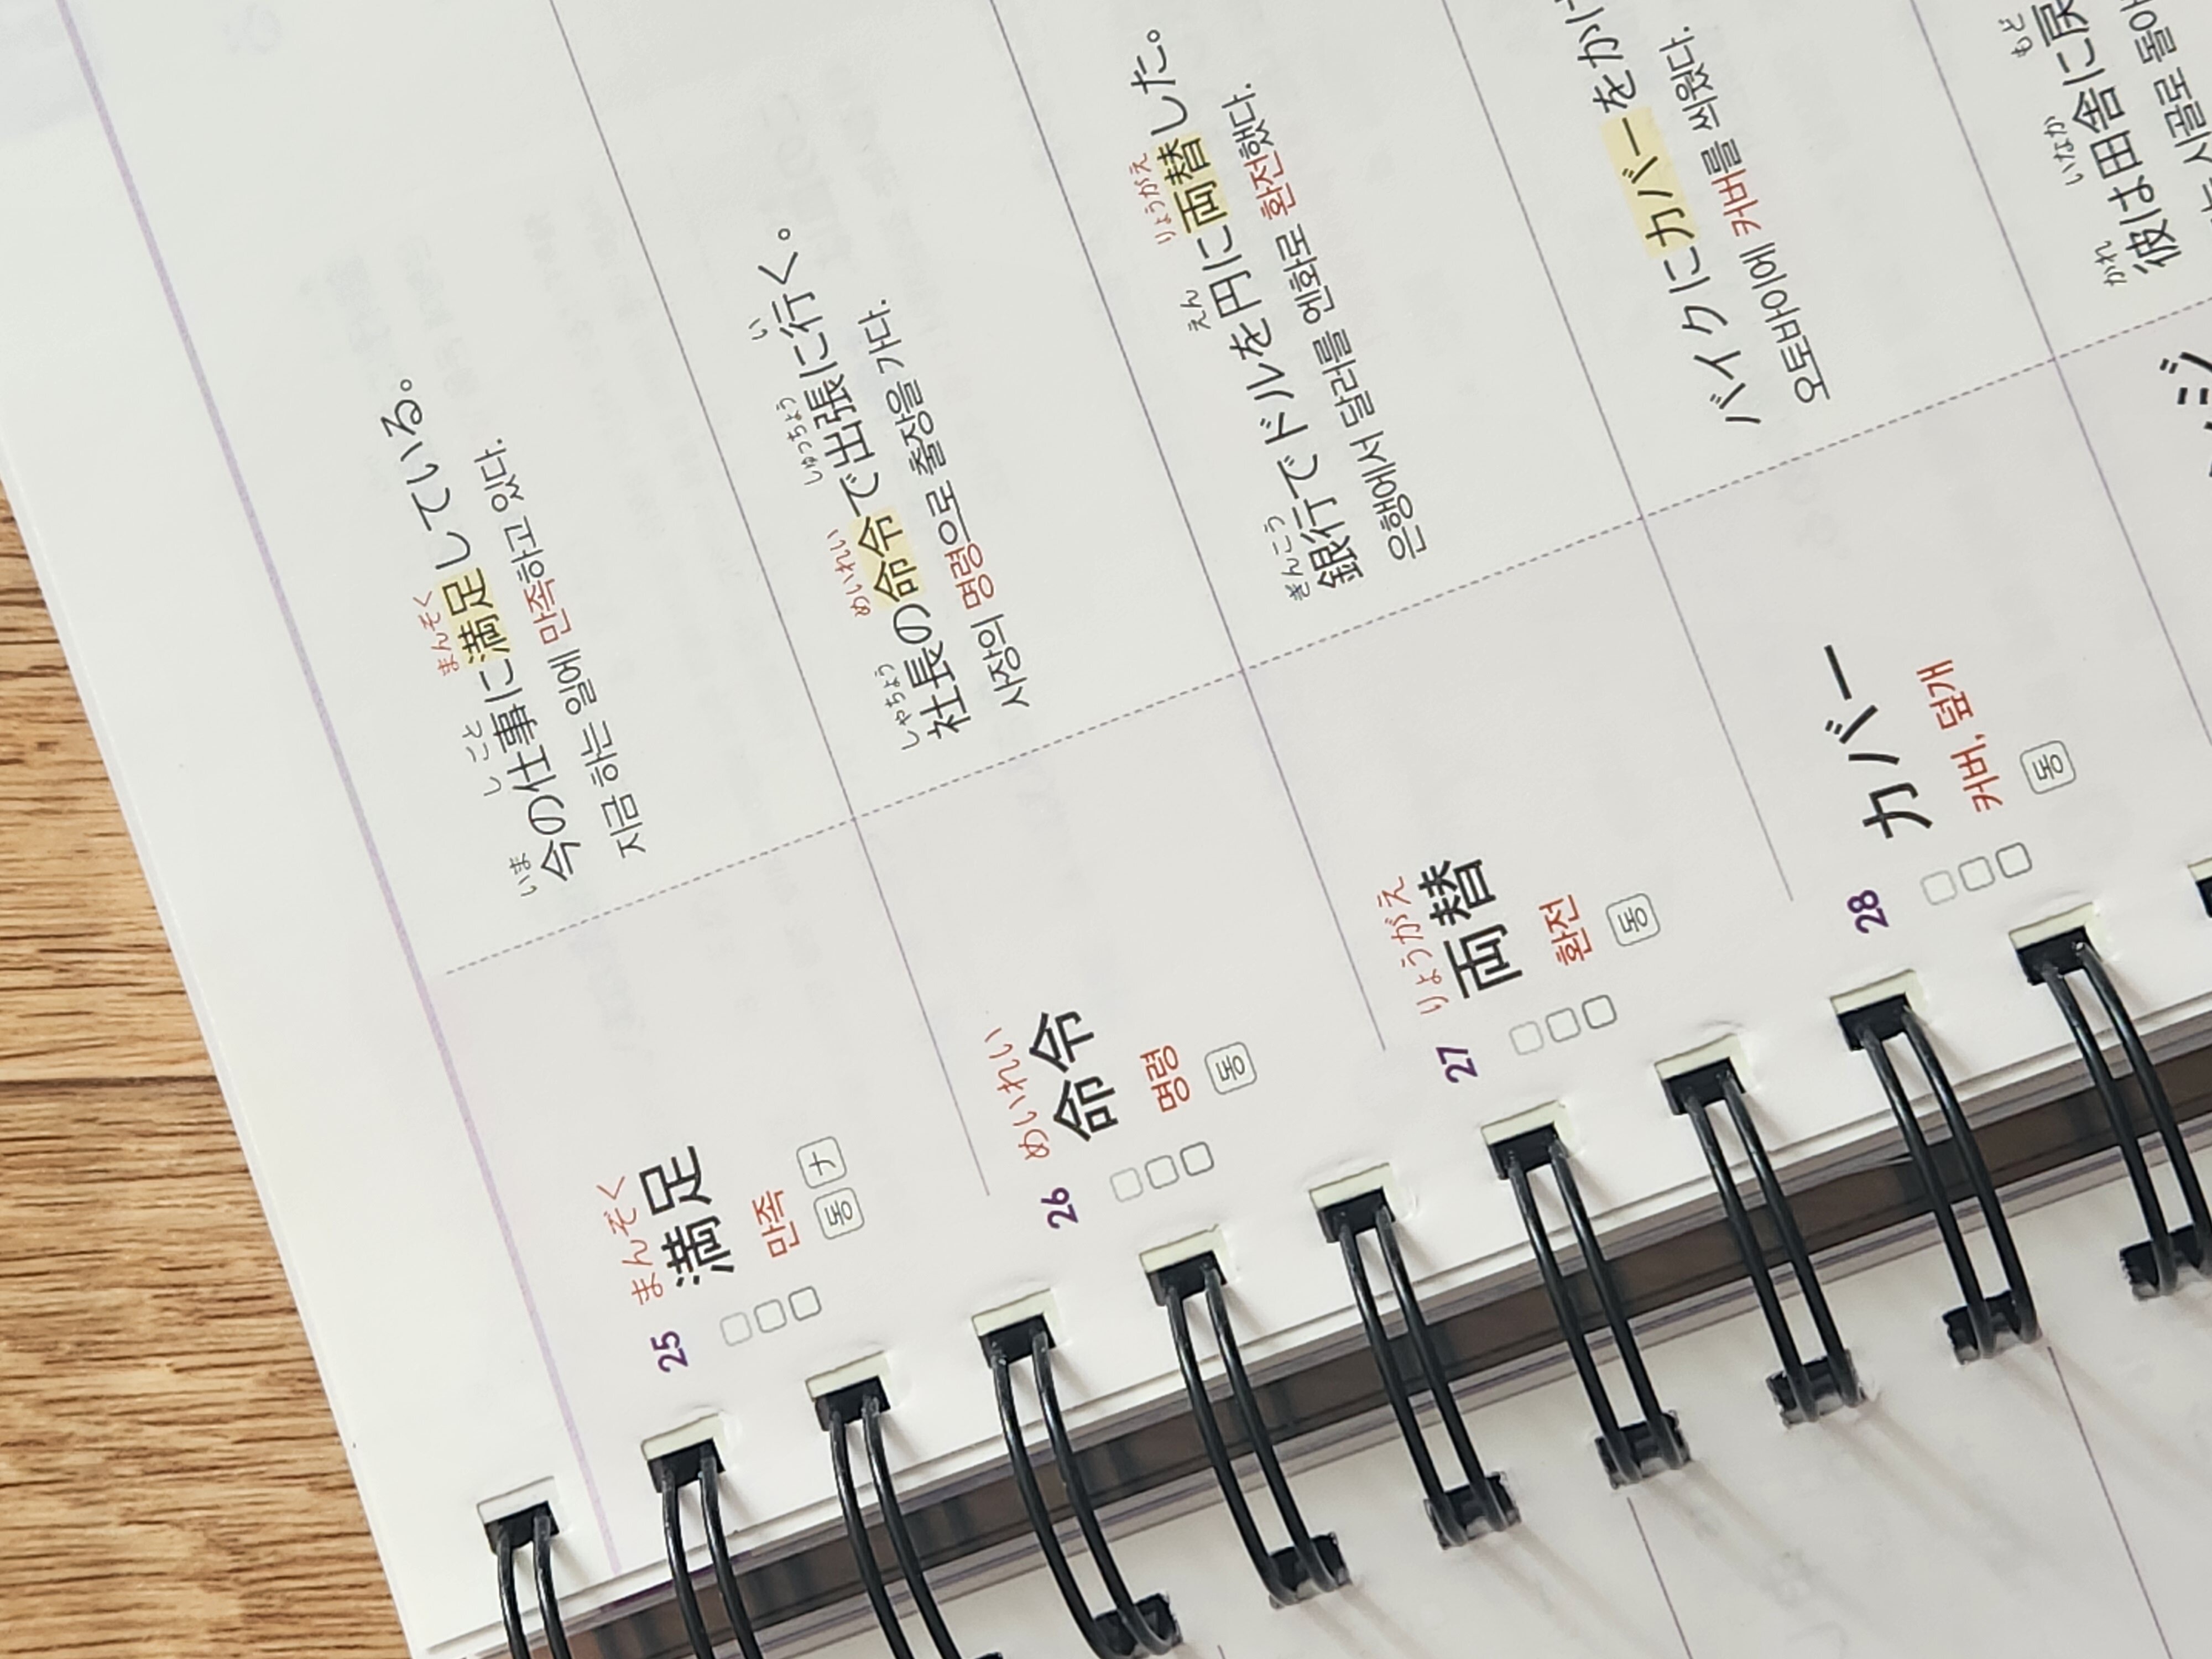 25
まんぞく
満足
만족
동 ナ
いま しごと まんぞく
今の仕事に満足している。
지금 하는 일에 만족하고 있다.
26
めいれい
命令
명령
동
しゃちょう めいれい しゅっちょう い
社長の命令で出張に行く。
사장의 명령으로 출장을 가다.
27
りょうがえ
両替
환전
동
ぎんこう えん りょうがえ
銀行でドルを円に両替した。
은행에서 달러를 엔화로 환전했다.
28
カバー
커버, 덮개
동
バイクにカバーをか
오토바이에 커버를 씌웠다.
かれ いなか もど
彼は田舎に戻
시골로 돌아